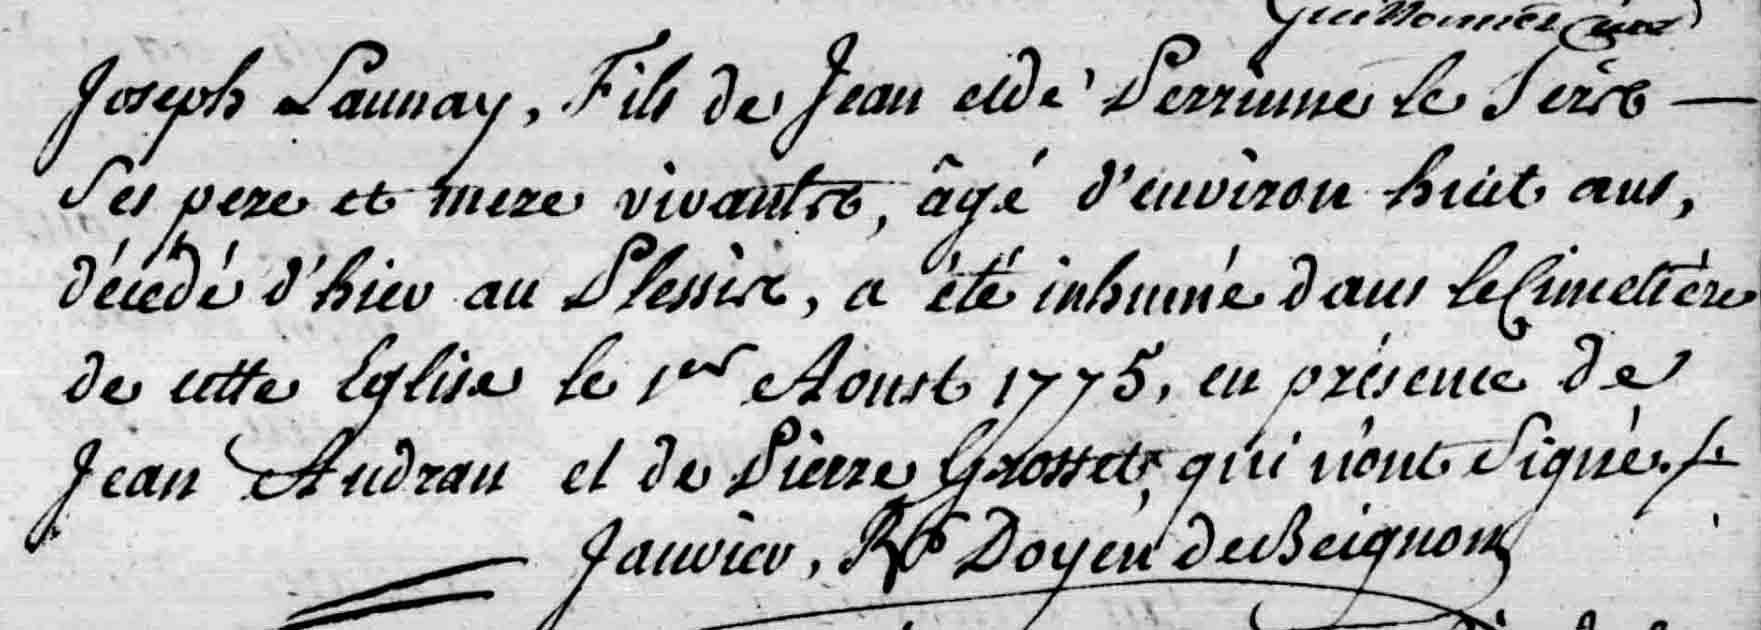 Joseph Launay, Fils de Jean et de Perrinne le
Ses pere et mere vivants, âgé d'environ huit ans,
décédé d'hier au Plessix, a été inhumé dans le Cimetière
de cette Eglise le 1er Aoust 1775, en présence de
Jean Audran et de Pierre Grosset, qui n'ont Signé.
Janvier, Rr Doyen de Beignon